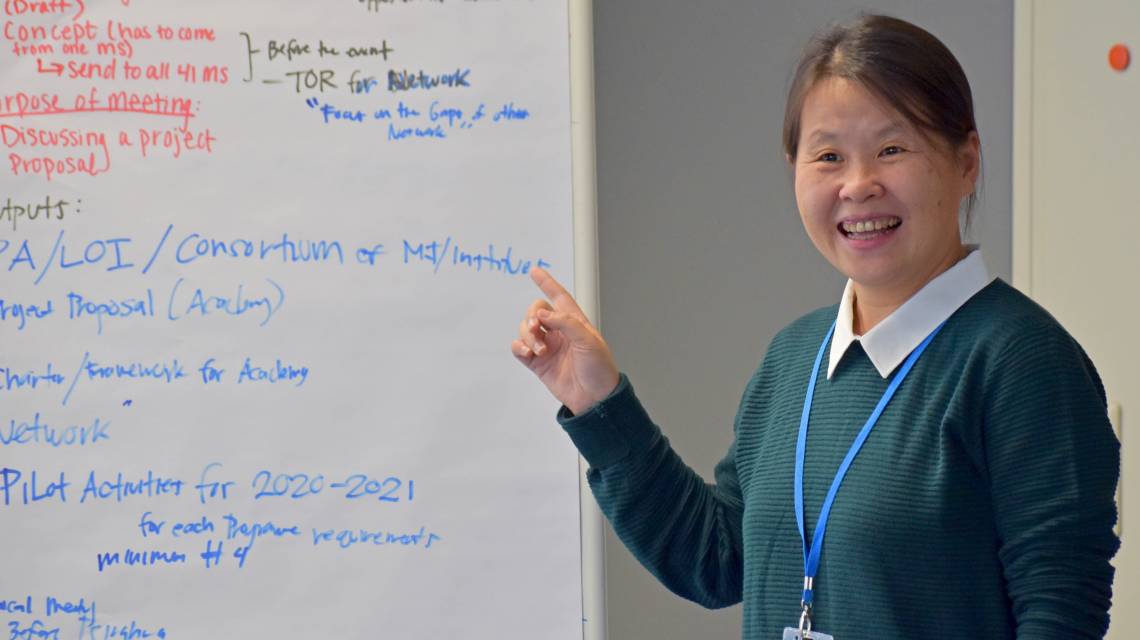 (Draft)
Concept (has to come
from one ms)
↳ send to all 41 ms
Before the event
- TOR for Network
"Focus on the Gaps of other
Network"
rpose of Meeting:
Discussing a project
Proposal
tputs:
PA/LOI/Consortium of MJ/Institutes
roject Proposal (Academy)
/framework for Academy
Network
Pilot Activities for 2020-2021
for each Programe requirements
minimum # 4
Before